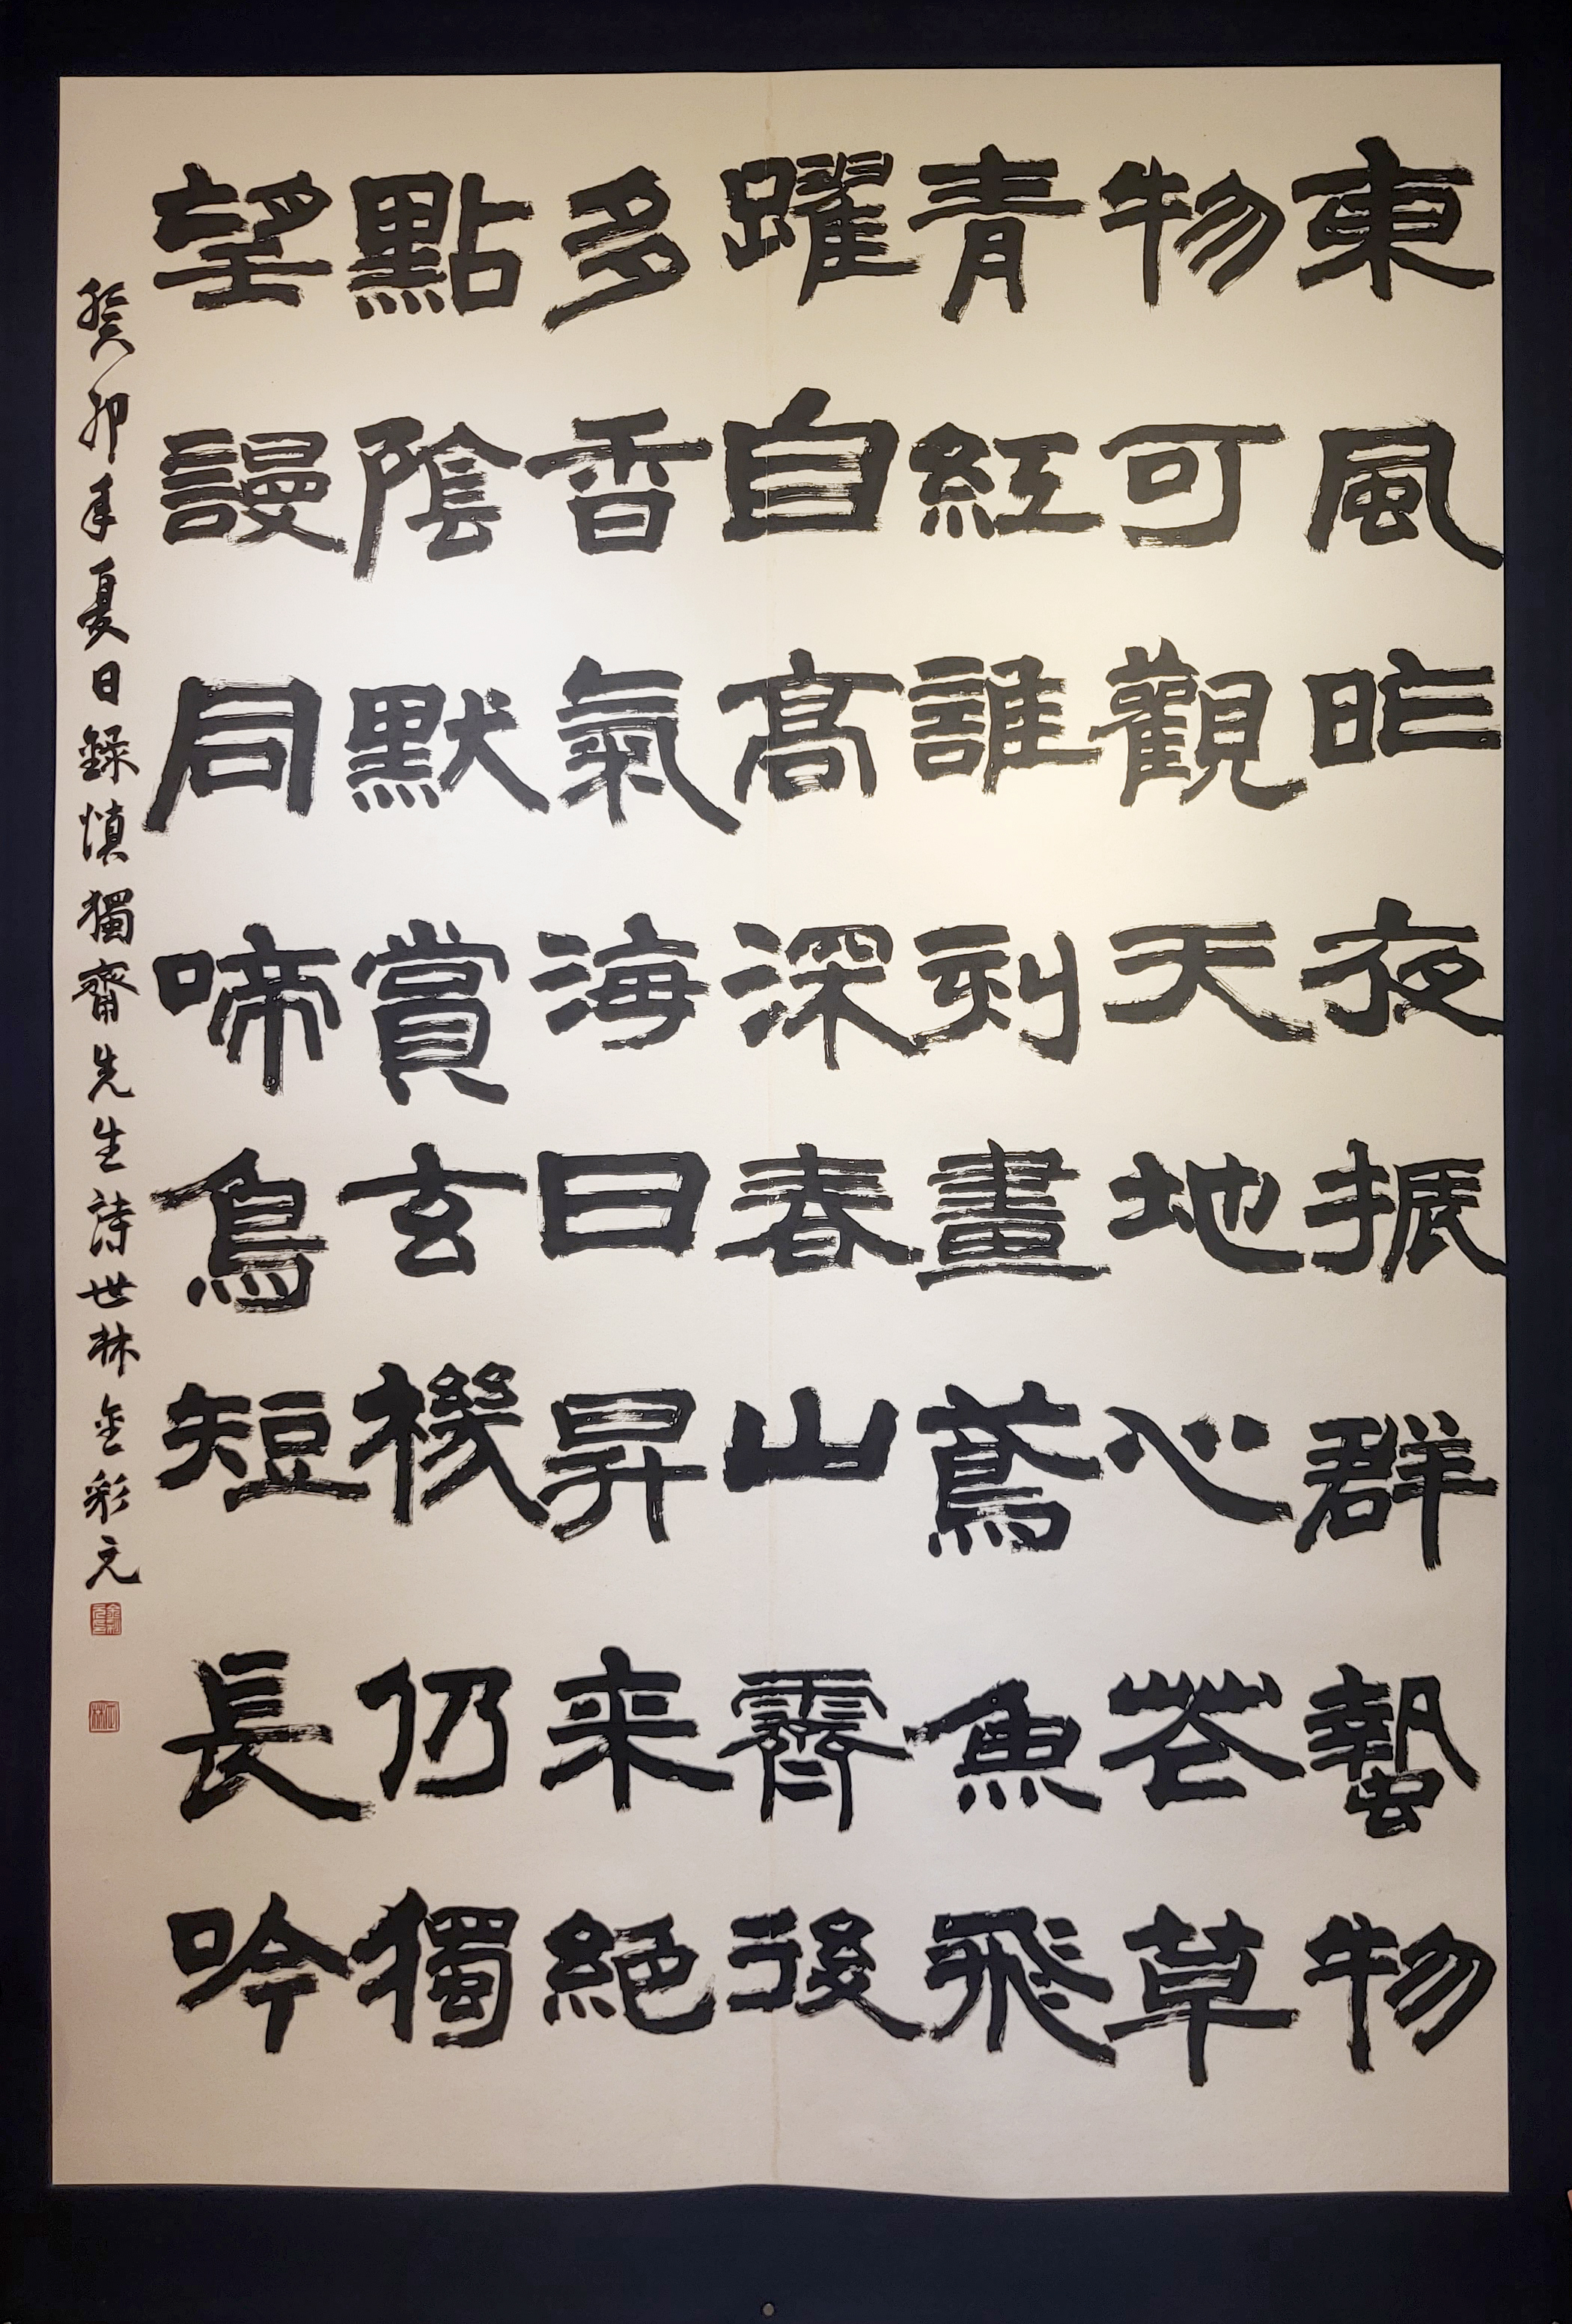 東風昨夜振群蟄物
物可觀天地心芲草
青紅誰刻畫鳶魚飛
躍自高深春山霽後
多香氣海日昇来絕
點陰默賞玄機仍獨
望謾同啼鳥短長吟
癸卯年夏日錄慎獨齋先生詩世林金彩元